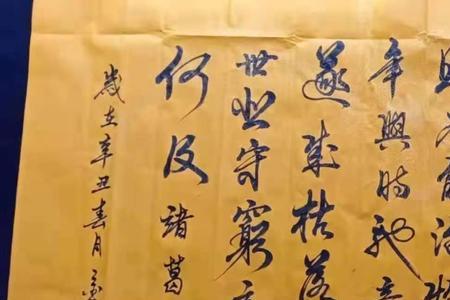 治
年與時馳意
遂成枯落
世悲守窮
何及 諸葛
歲在辛丑春月